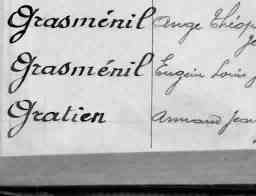 Grasménil Ange Théop
Je
Grasménil Eugèn Louis
Gratien Armand Jean